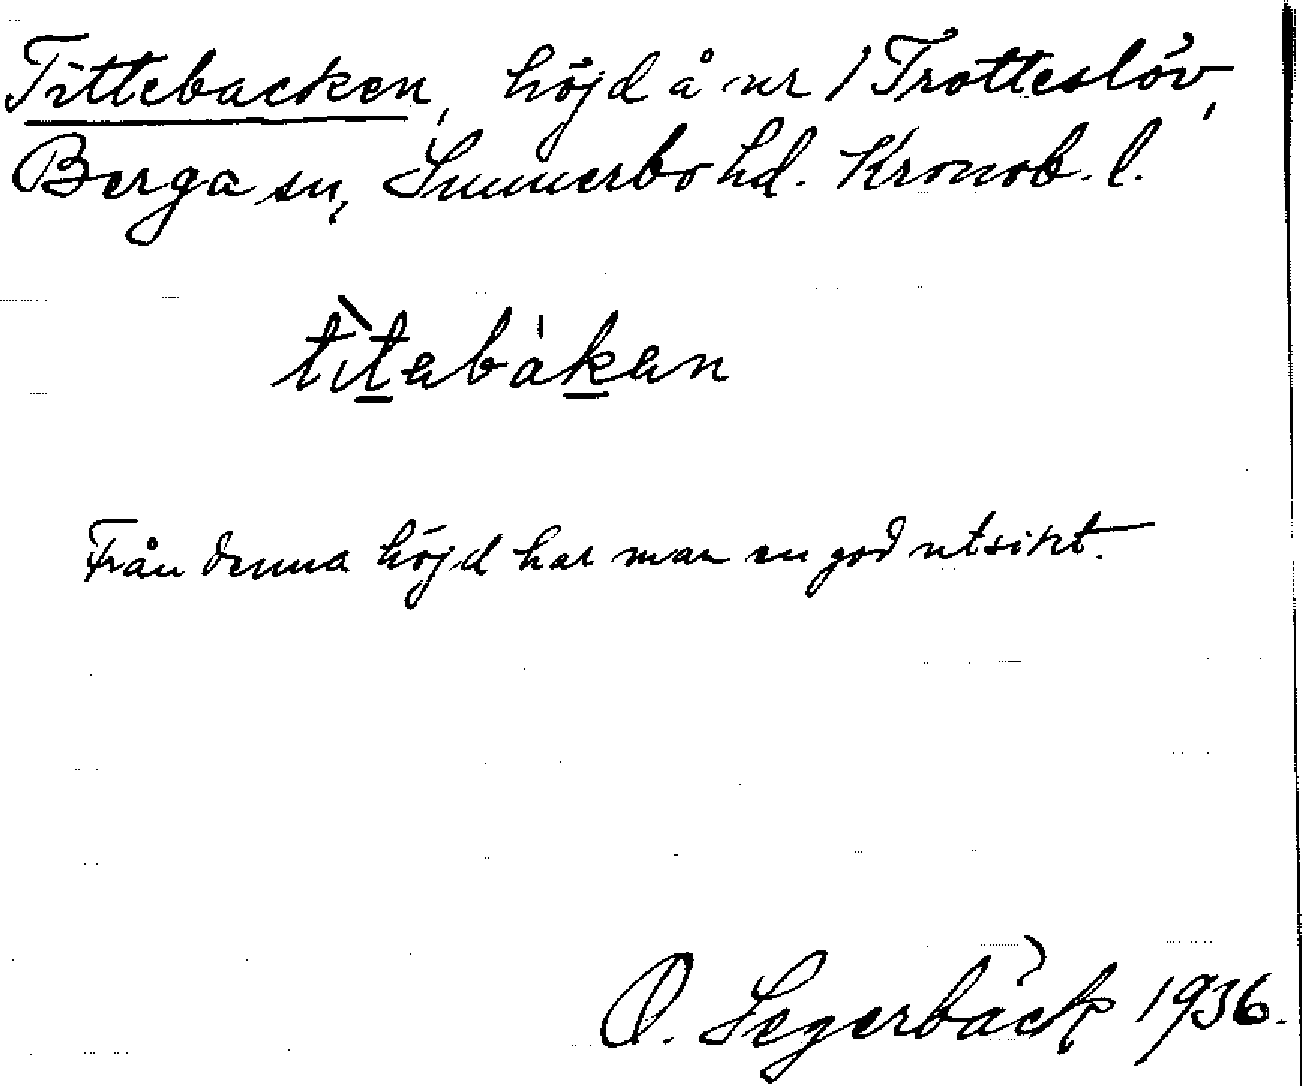 Tittebacken, höjd å nr 1 Trotteslöv,
Berga sn, Sunnerbo hd. Kronob. l.
tìtəbákən
Från denna höjd har man en god utsikt.
O. Segerbäck 1936.